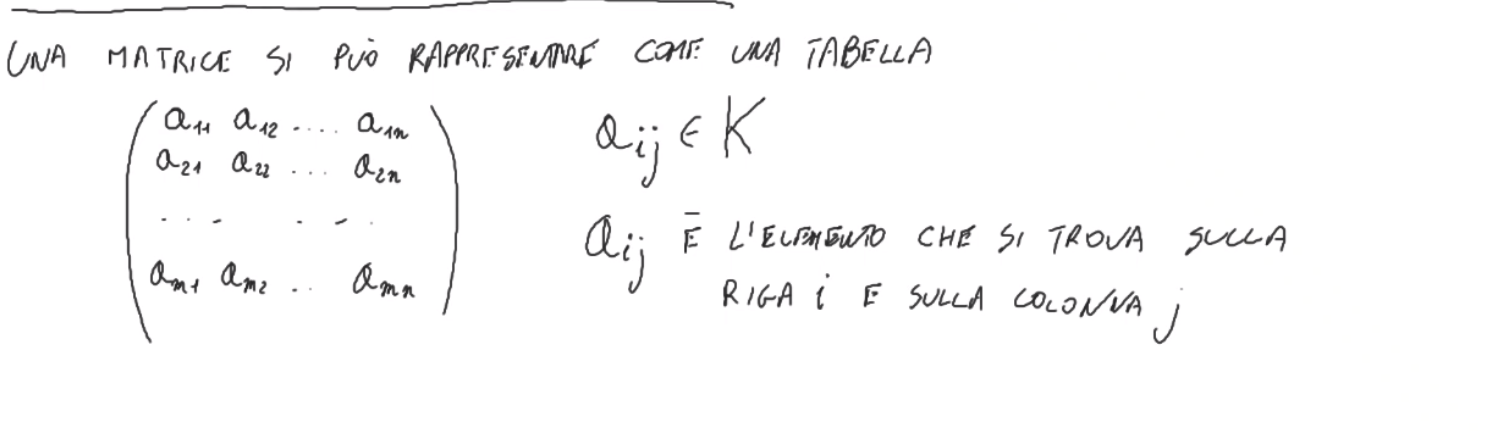 UNA MATRICE SI PUÒ RAPPRESENTARE COME UNA TABELLA
a₁₁ a₁₂ .... a₁ₙ
a₂₁ a₂₂ ... a₂ₙ
... - . - .
aₘ₁ aₘ₂ .. aₘₙ
aᵢⱼ ∈ K
aᵢⱼ È L'ELEMENTO CHE SI TROVA SULLA
RIGA i E SULLA COLONNA j